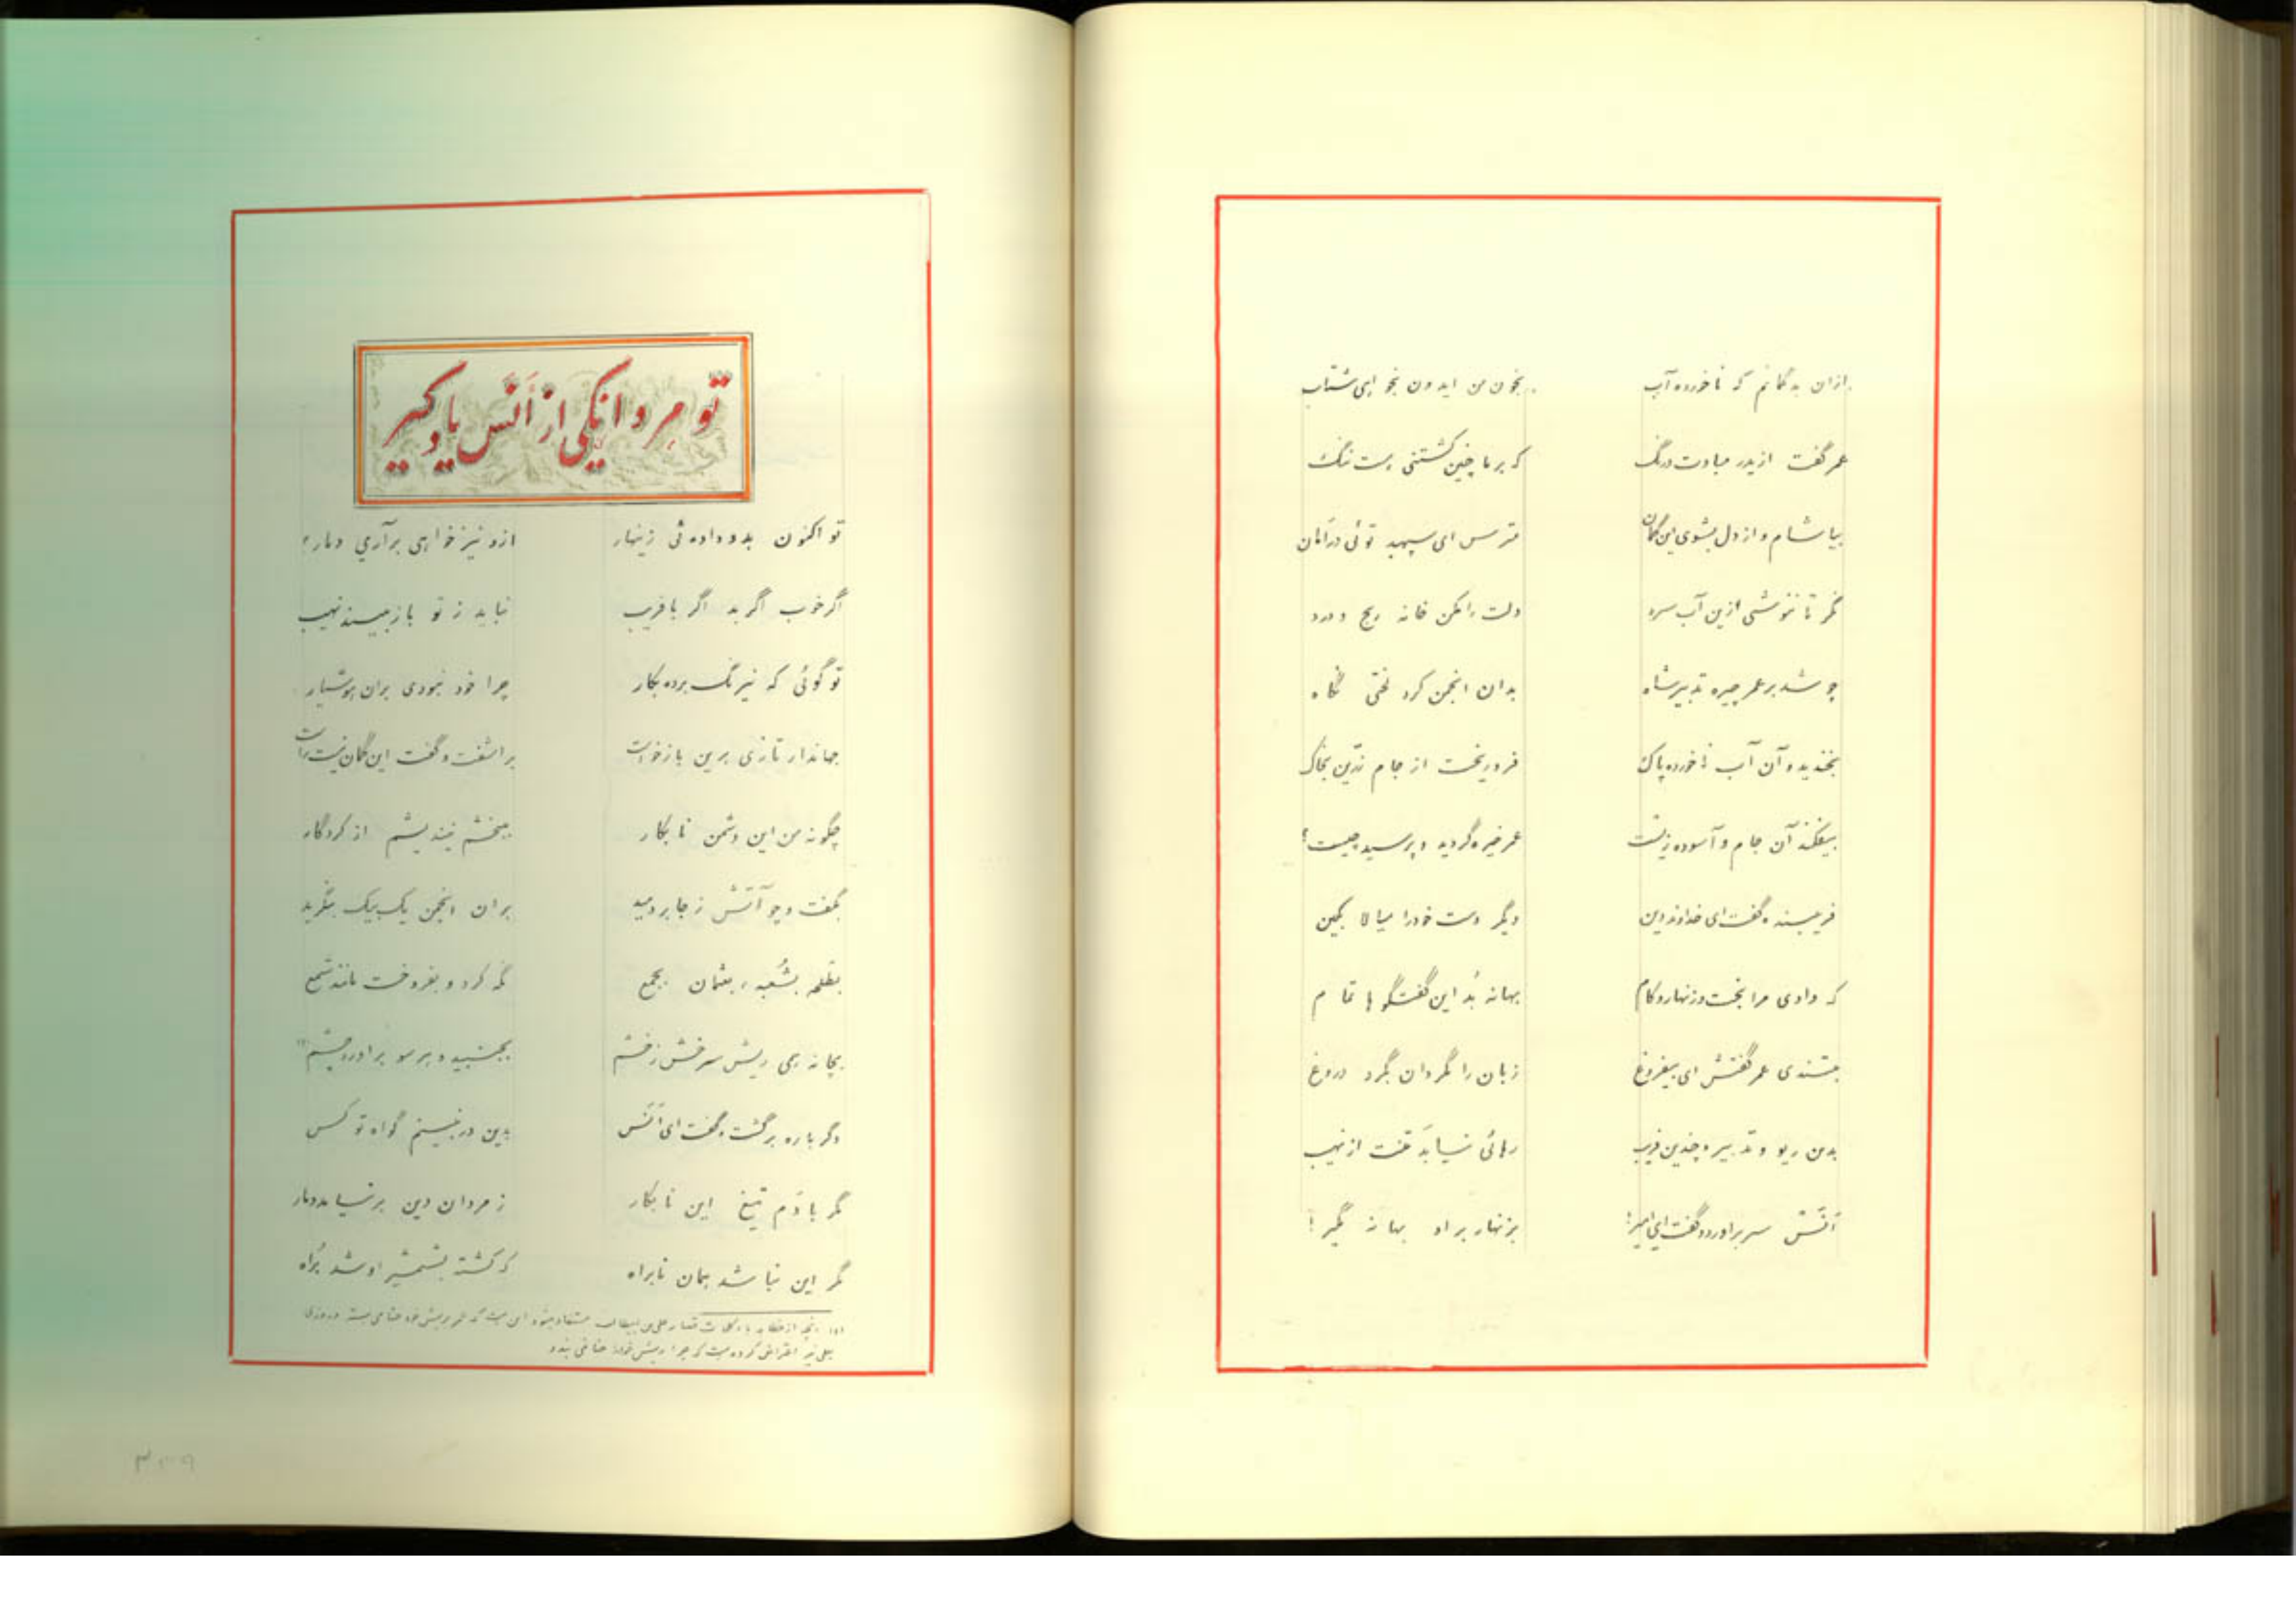 ازان بدگمانم که ناخورده آب بخون من ایدون بخواهی شتاب
عمر گفت ازیدر مبادت درنگ که بر ما چنین کشتنی هست ننگ
بیاشام و از دل بشوی این گمان مترس ای سپهبد توئی در امان
نگر تا ننوشی ازین آب سرد دلت را مکن خانه رنج و درد
چو شد بر عمر چیره تدبیر شاه بدان انجمن کرد لختی نگاه
بخندید و آن آب ناخورده پاک فرو ریخت از جام زرّین بخاک
بیفکند آن جام و آسوده زیست عمر خیره گردید و پرسید چیست؟
فریبنده گفت ای خداوند دین دگر دست خود را میالا بکین
که دادی مرا بخت و زنهار و کام بهانه بُد این گفتگوها تمام
بتندی عمر گفتش ای بیفروغ زبان را مگردان بگرد دروغ
بدین ریو و تدبیر و چندین فریب رهائی نیابد تنت از نهیب
اَنَسْ سر براورد و گفت ای امیر! بزنهار بر او بهانه مگیر!
تو مردانگی از اَنَس یاد گیر
تو اکنون بدو داده‌ئی زینهار ازو نیز خواهی برآری دمار؟
اگر خوب اگر بد اگر با فریب نباید ز تو باز بیند نهیب
تو گوئی که نیرنگ برده بکار چرا خود نبودی بران هوشیار
جهاندار تازی برین بازخواست براشفت و گفت این گمان نیست راست
چگونه من این دشمن نابکار ببخشم نیندیشم از کردگار
بگفت و چو آتش ز جا بردمید بران انجمن یک بیک بنگرید
بطلحه بشُعبه بعثمان بجمع نگه کرد و بفروخت مانند شمع
بچانه همی ریش سرخش ز خشم بجنبید و هر سو براورد چشم (۱)
دگر باره برگشت و گفت ای اَنَس بدین در نبینم گواه تو کس
مگر با دَم تیغ این نابکار ز مردان دین بر نیامد دمار
مگر این نباشد همان نابراه که کشته بشمشیر او شد بُراه